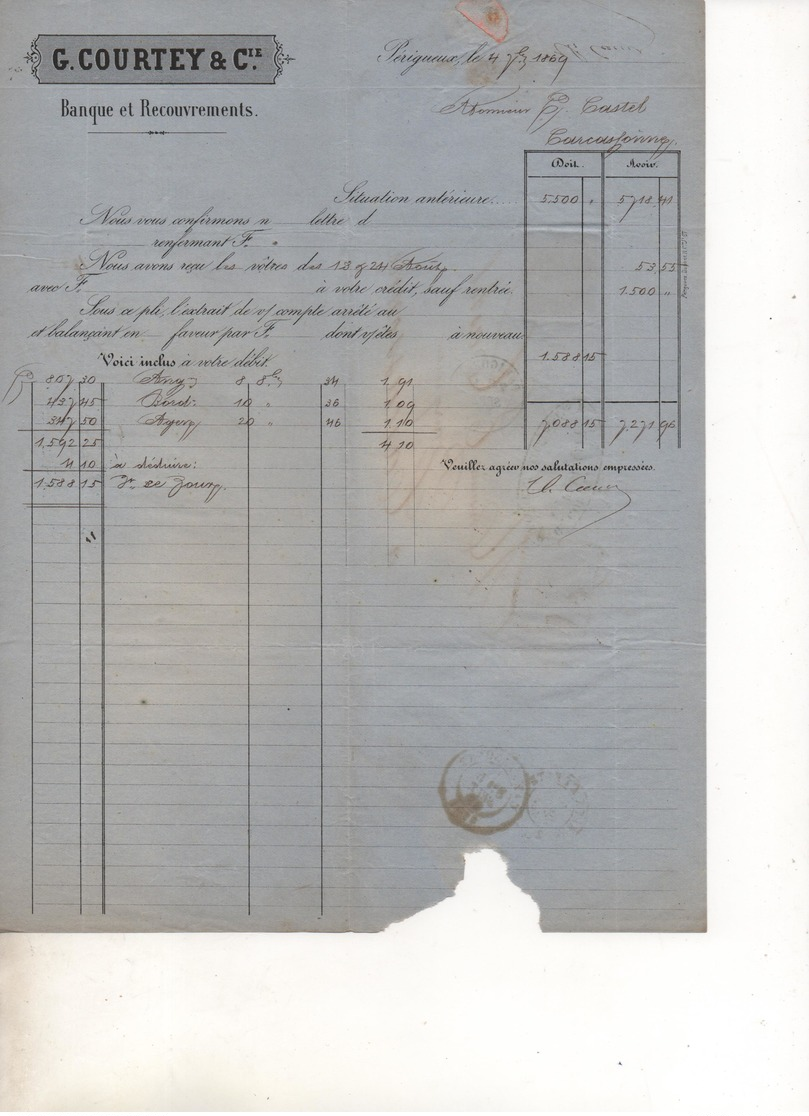 G. COURTEY & C.IE
Banque et Recouvrements.
Périgueux, le 4 7bre 1869
Monsieur P. Castel
Carcassonne
Doit. Avoir.
Situation antérieure..... 5.500 " 5718 41
Nous vous confirmons n lettre d
renfermant F. "
Nous avons reçu les vôtres des 13 & 24 Août 53,55
avec F. à votre crédit, sauf rentrée. 1.500 "
Sous ce pli, l'extrait de v/ compte arrêté au
et balançant en faveur par F. dont v/êtes à nouveau
1.588 15
Voici inclus à votre débit
807 30 Ang: 8 8bre 34 1 91
437 45 Bord: 10 " 36 1 09
347 50 Agen 20 " 46 1 10
7,088 15 7,271 96
1.592 25 4 10
4 10 à déduire:
Veuillez agréer nos salutations empressées.
1.588 15 Vr ce jour